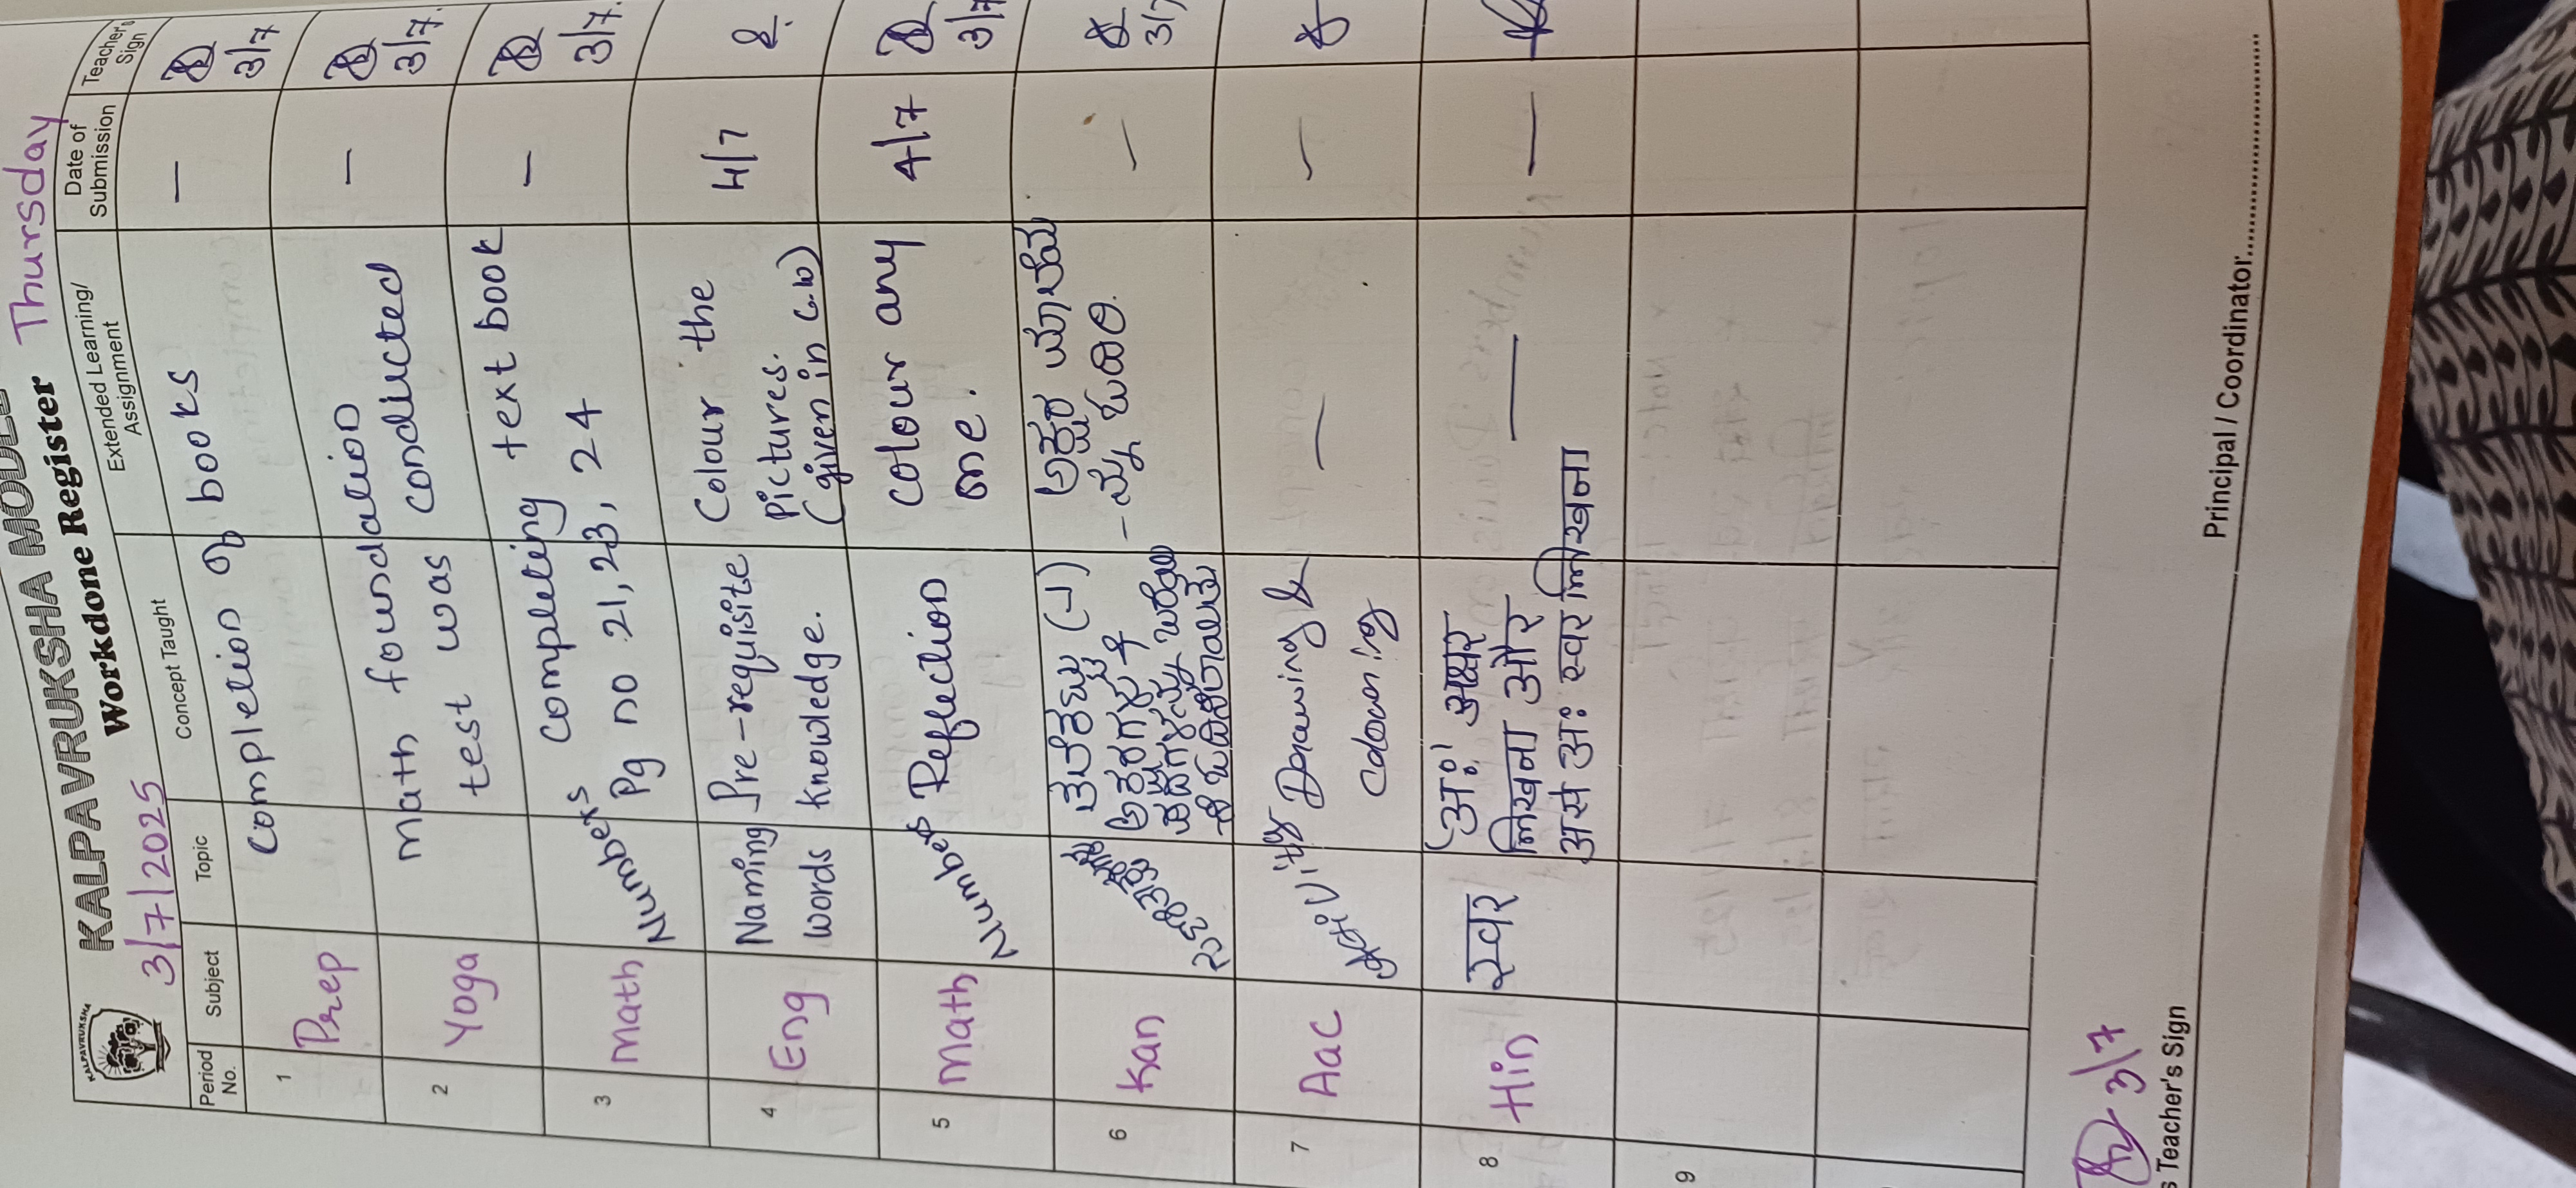 KALPAVRUKSHA MODEL
Workdone Register
KALPAVRUKSHA
3/7/2025
Thursday
Period No.
Subject
Topic
Concept Taught
Extended Learning/ Assignment
Date of Submission
Teacher's Sign
1
Prep
completion of books
—
3/7
2
Yoga
math foundation
test was conducted
—
3/7.
3
Math
Numbers
Completing text book
Pg no 21, 23, 24
—
3/7.
4
Eng
Naming
words
Pre-requisite
knowledge.
Colour the
pictures.
(given in C.W)
4/7
5
Math
Numbers
Reflection
colour any
one.
4/7
3/7
6
Kan
ಅಕ್ಷರ
3/7
7
Aac
Activity
Drawing &
colouring
—
—
8
Hin
स्वर
'अः' अक्षर
लिखना और
अ से अः स्वर लिखना
—
—
9
3/7
Teacher's Sign
Principal / Coordinator